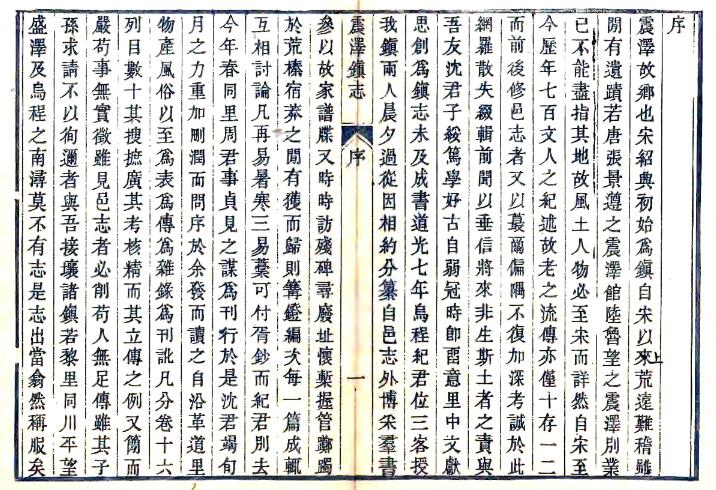 序
震澤故鄉也宋紹興初始爲鎮自宋以來荒遠難稽雖
上
閒有遺蹟若唐張景遵之震澤館陸魯望之震澤別業
已不能盡指其地故風土人物必至宋而詳然自宋至
今歷年七百文人之紀述故老之流傳亦僅十存一二
而前後修邑志者又以蕞爾偏隅不復加深考誠於此
網羅散失綴輯前聞以垂信將來非生斯土者之責與
吾友沈君子綏篤學好古自弱冠時卽畱意里中文獻
思創爲鎮志未及成書道光七年烏程紀君位三客授
我鎮兩人晨夕過從因相約分纂自邑志外博采羣書
震澤鎮志
序
一
參以故家譜牒又時時訪殘碑尋廢址懷槧握管躑躅
於荒榛宿莽之閒有獲而歸則篝鐙編次每一篇成輒
互相討論凡再易暑寒三易藁可付胥鈔而紀君別去
今年春同里周君事貞見之謀爲刊行於是沈君竭旬
月之力重加刪潤而問序於余發而讀之自沿革道里
物產風俗以至爲表爲傳爲雜錄爲刊訛凡分卷十六
列目數十其搜摭廣其考核精而其立傳之例又簡而
嚴苟事無實徵雖見邑志者必削苟人無足傳雖其子
孫求請不以徇邇者與吾接壤諸鎮若黎里同川平望
盛澤及烏程之南潯莫不有志是志出當翕然稱服矣